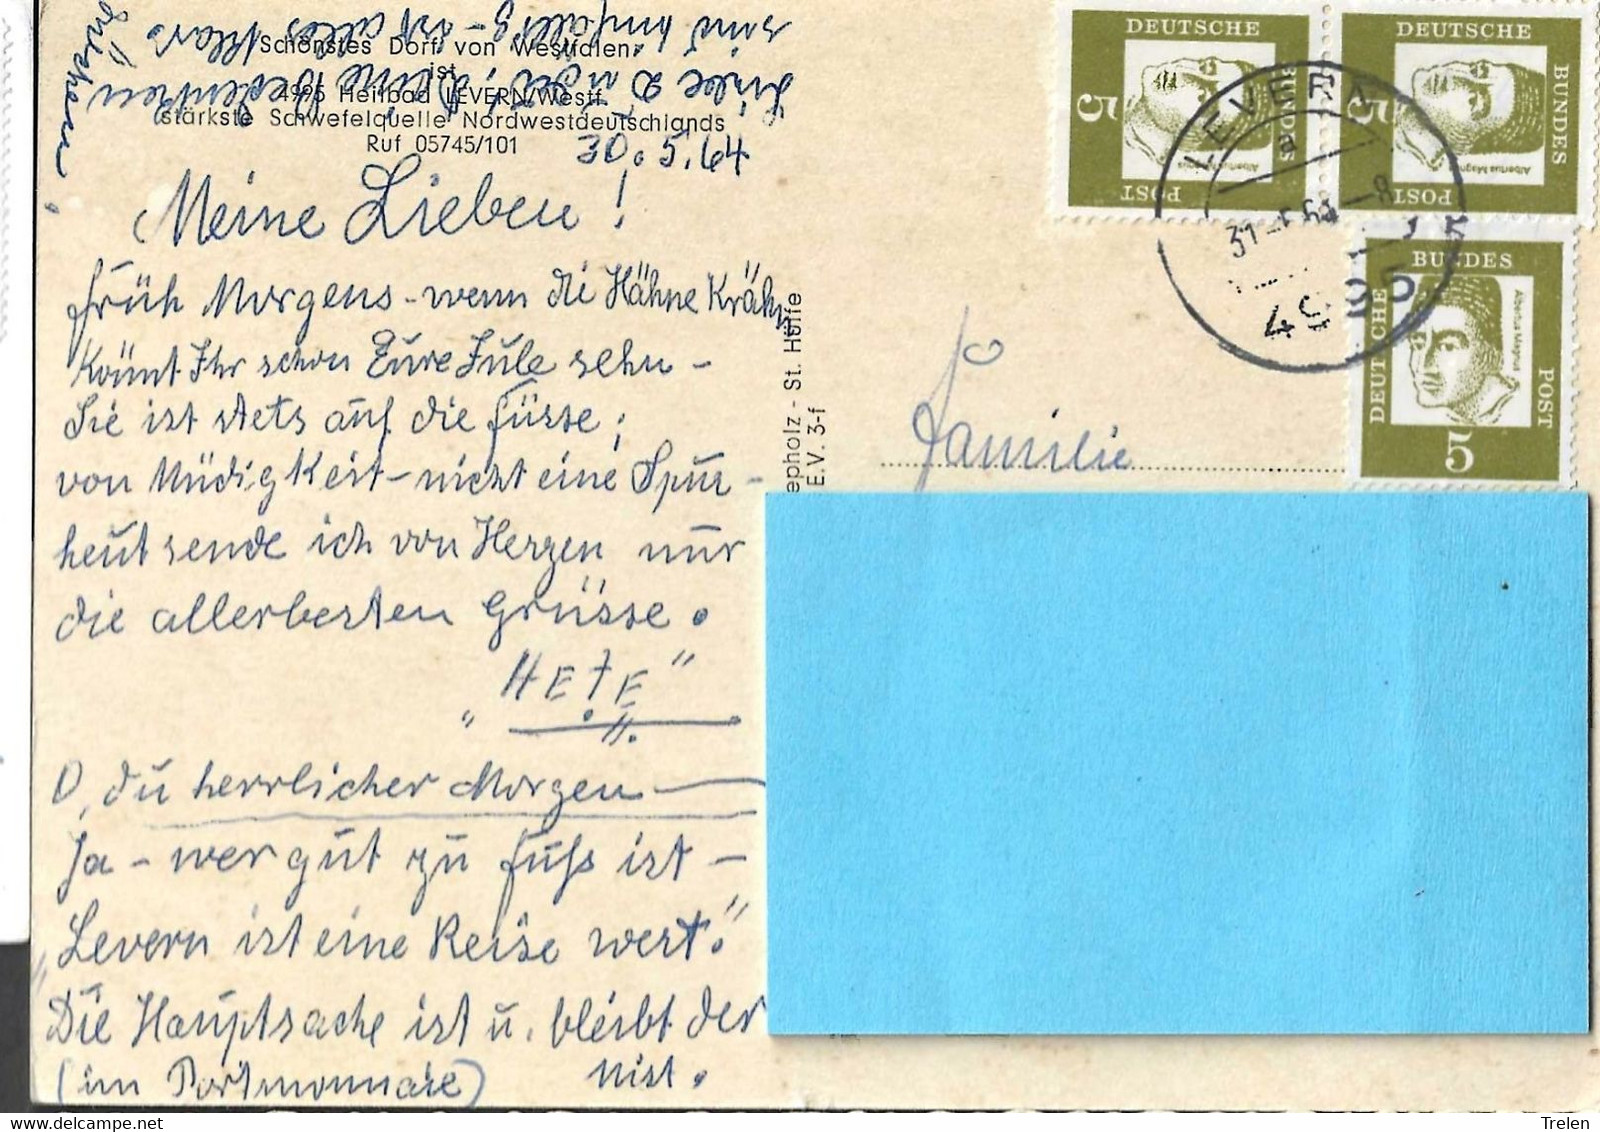 Schönstes Dorf von Westfalen
ist
4995 Heilbad LEVERN/Westf.
stärkste Schwefelquelle Nordwestdeutschlands
Ruf 05745/101
30.5.64
Meine Lieben!
früh Morgens - wenn die Hähne Krähn
könnt Ihr schon Eure Jule sehn -
Sie ist stets auf die füsse;
von Müdigkeit - nicht eine Spur -
heut sende ich von Herzen nur
die allerbesten Grüsse.
"HETE"
O, du herrlicher Morgen
Ja - wer gut zu fuß ist -
"Levern ist eine Reise wert."
Die Hauptsache ist u. bleibt der
(im Portmonnaie) Mist.
Liebe
deine Bedenken
sind hinfällig - ist alles klar.
epholz - St. Hülfe
E.V. 3-f
Familie
DEUTSCHE
BUNDES
POST
5
Albertus Magnus
DEUTSCHE
BUNDES
POST
5
Albertus Magnus
DEUTSCHE
BUNDES
POST
5
Albertus Magnus
LEVERN
a
4995
Trelen
delcampe.net